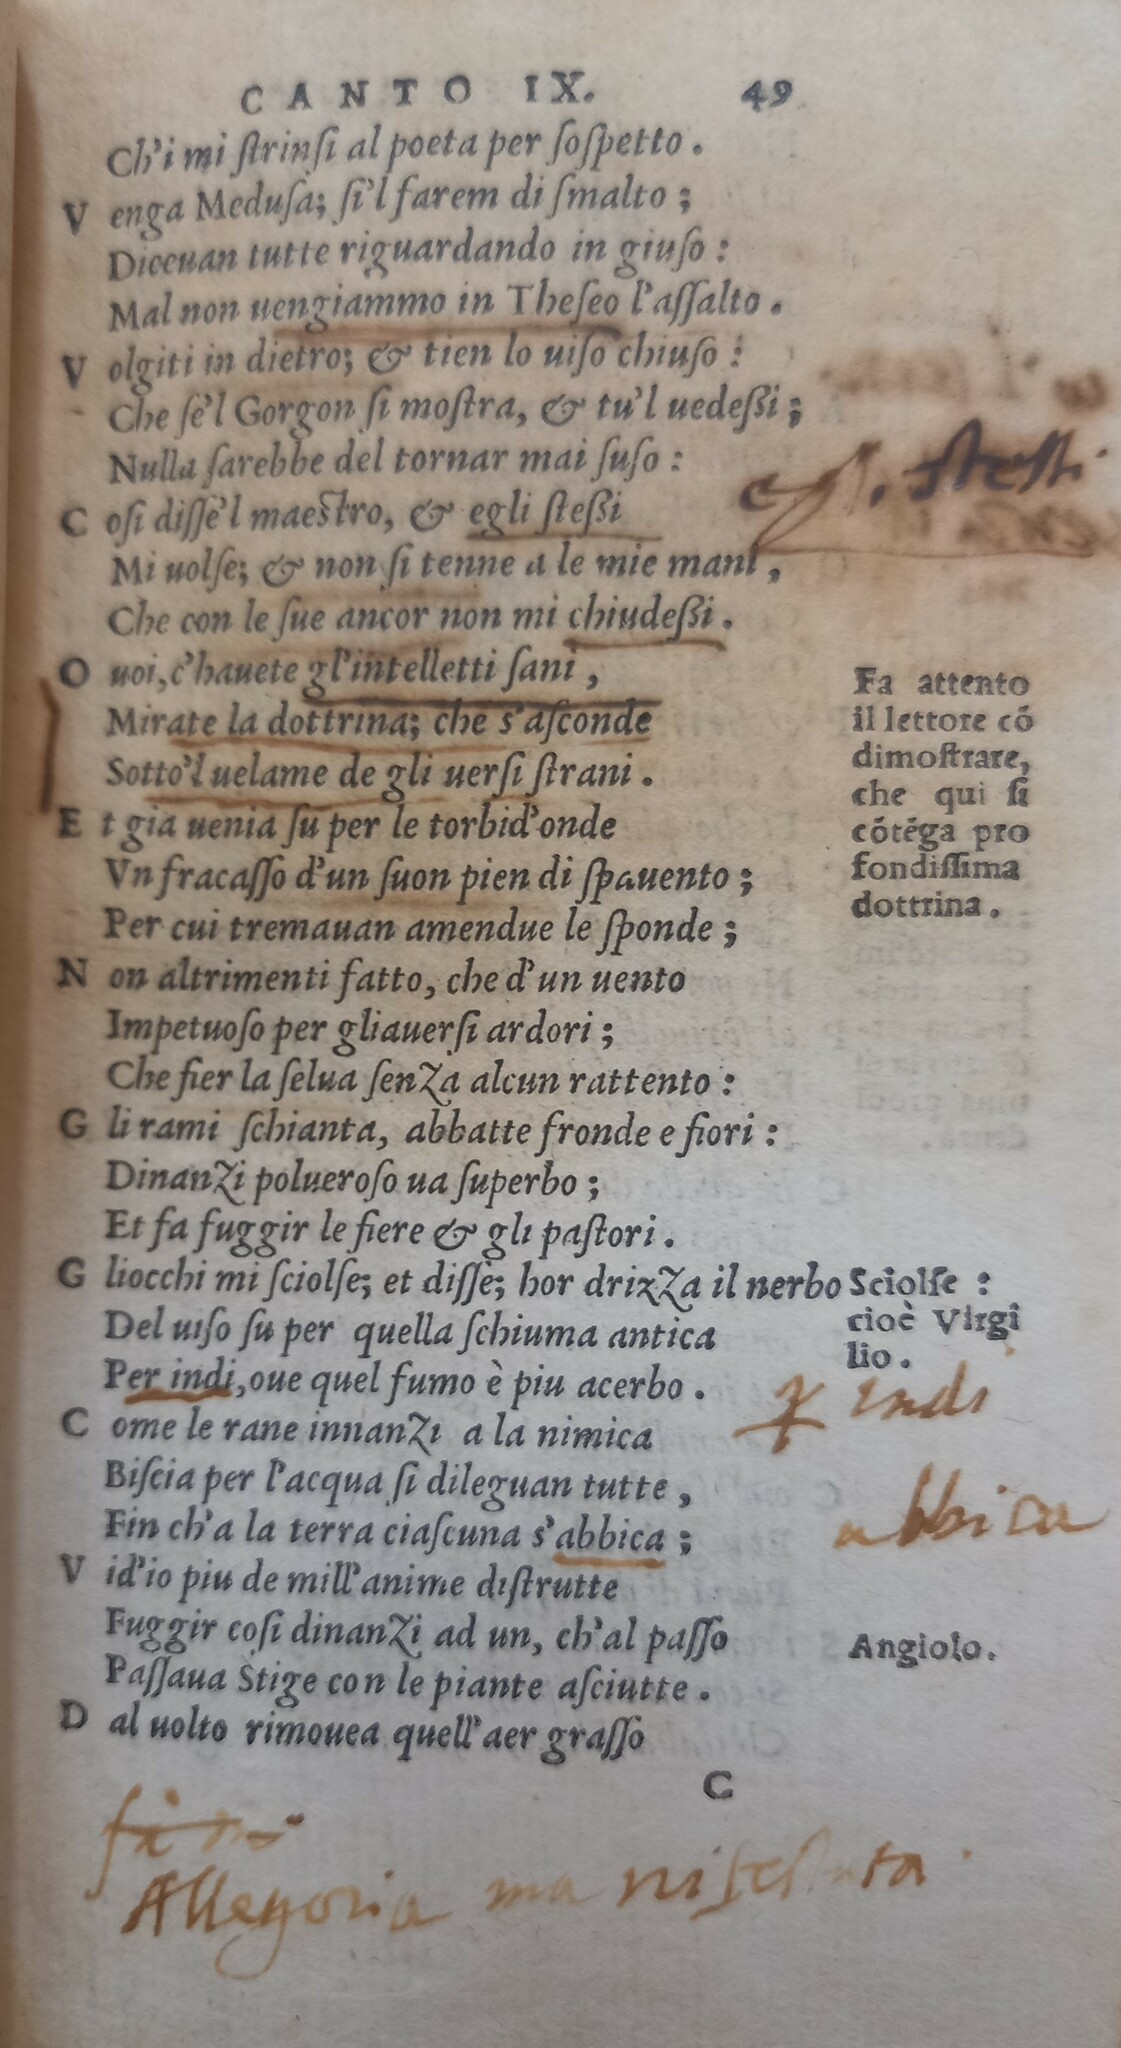 CANTO IX. 49
Ch'i mi ſtrinſi al poeta per ſoſpetto.
V enga Meduſa; ſi'l farem di ſmalto;
Diceuan tutte riguardando in giuſo:
Mal non uengiammo in Theſeo l'aſſalto.
V olgiti in dietro; & tien lo uiſo chiuſo:
Che ſe'l Gorgon ſi moſtra, & tu'l uedeßi;
Nulla ſarebbe del tornar mai ſuſo:
C oſi diſſe'l maeſtro, & egli steßi
Mi uolſe; & non ſi tenne a le mie mani,
Che con le ſue ancor non mi chiudeßi.
O uoi, c'hauete gl'intelletti ſani,
Mirate la dottrina; che s'aſconde
Sotto'l uelame de gli uerſi ſtrani.
E t gia uenia ſu per le torbid'onde
Vn fracaſſo d'un ſuon pien di ſpauento;
Per cui tremauan amendue le ſponde;
N on altrimenti fatto, che d'un uento
Impetuoſo per gliauerſi ardori;
Che fier la ſelua ſenza alcun rattento:
G li rami ſchianta, abbatte fronde e fiori:
Dinanzi polueroſo ua ſuperbo;
Et fa fuggir le fiere & gli paſtori.
G liocchi mi ſciolſe; et diſſe; hor drizza il nerbo
Del uiſo ſu per quella ſchiuma antica
Per indi, oue quel fumo è piu acerbo.
C ome le rane innanzi a la nimica
Biſcia per l'acqua ſi dileguan tutte,
Fin ch'a la terra ciaſcuna s'abbica;
V id'io piu de mill'anime diſtrutte
Fuggir coſi dinanzi ad un, ch'al paſſo
Paſſaua Stige con le piante aſciutte.
D al uolto rimouea quell'aer graſſo
C
stesti
Fa attento
il lettore cõ
dimoſtrare,
che qui ſi
cõtẽga pro
fondiſſima
dottrina.
Sciolſe:
cioè Virgi
lio.
indi
abbica
Angiolo.
Allegoria manifestata